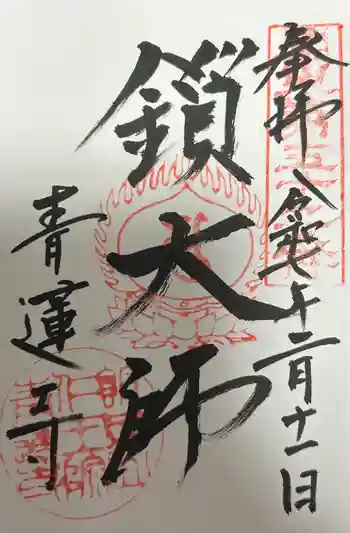 奉拝
令和七年二月十一日
鎖大師
青蓮寺